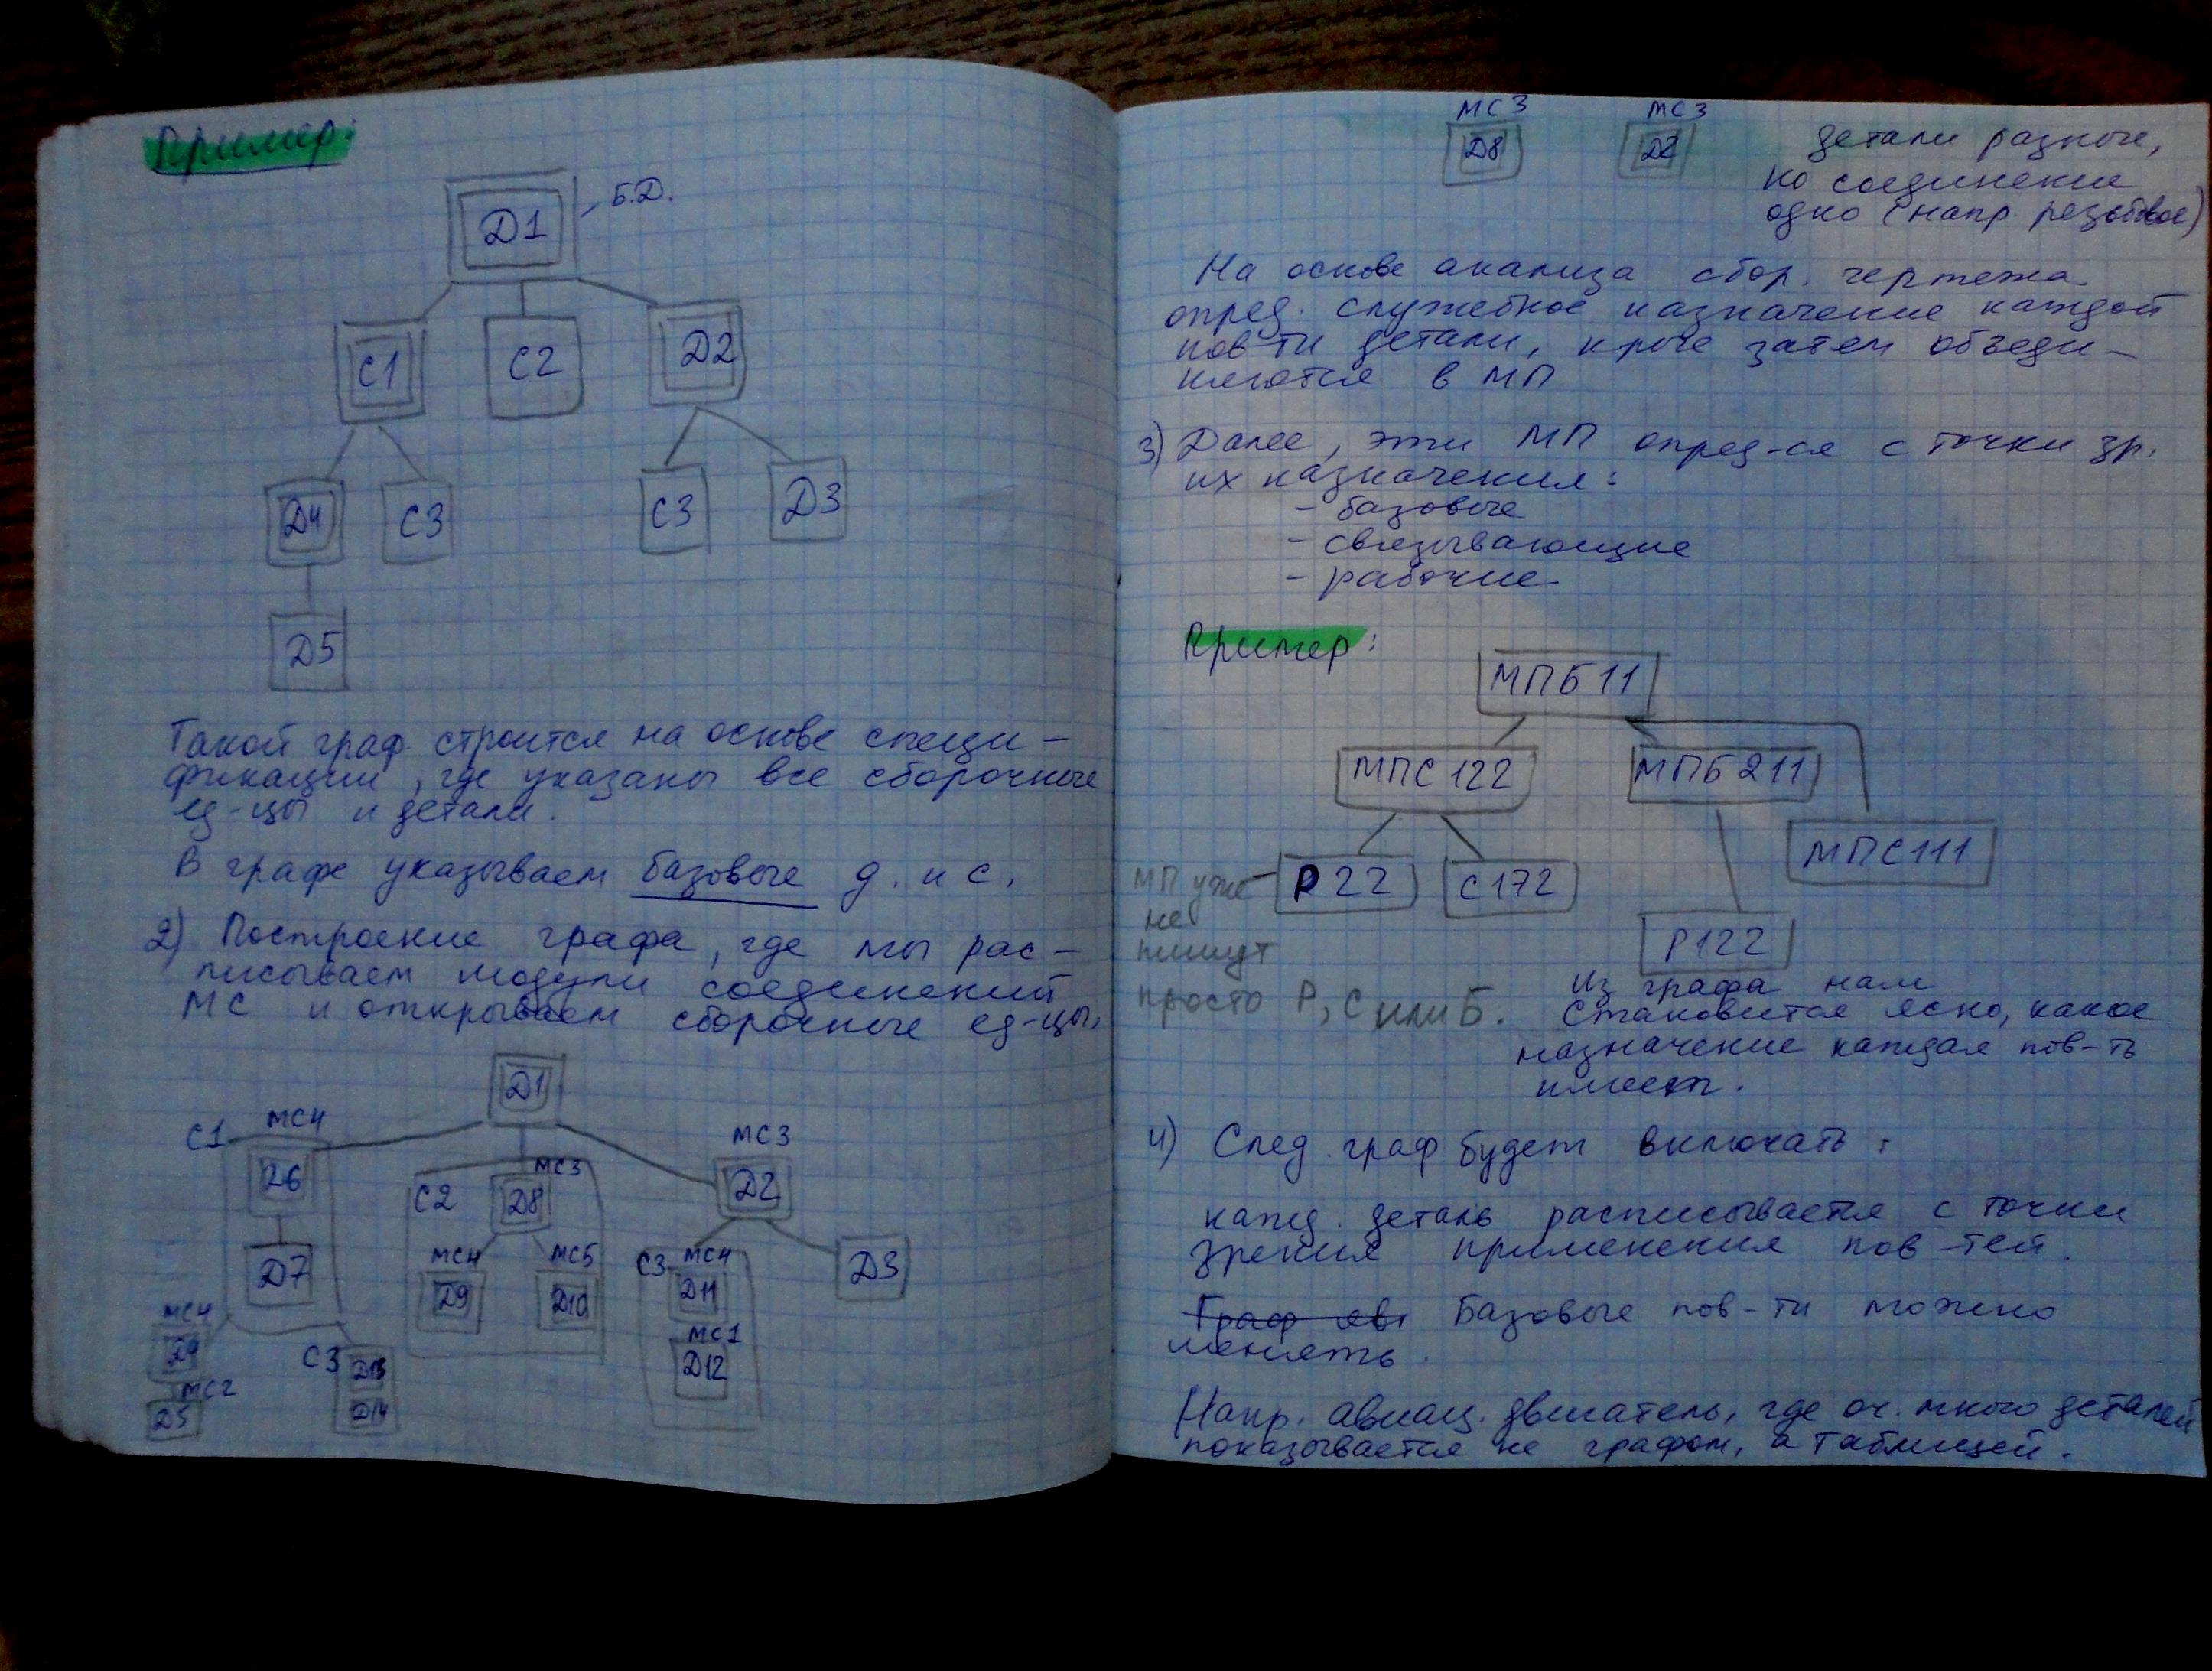 Пример:
Д1
Б.Д.
С1
С2
Д2
Д4
С3
С3
Д3
Д5
Такой граф строится на основе специ-
фикации, где указаны все сборочные
ед-цы и детали.
В графе указываем базовые д. и с.
2) Построение графа, где мы рас-
писываем модули соединений
МС и открываем сборочные ед-цы.
Д1
С1
МС4
Д6
Д7
МС4
Д4
МС2
Д5
С3
Д13
Д14
С2
МС3
Д8
МС4
Д9
МС5
Д10
МС3
Д2
С3
МС4
Д11
МС1
Д12
Д3
МС3
Д8
МС3
Д2
детали разные,
но соединение
одно (напр. резьбовое)
На основе анализа сбор. чертежа
опред. служебное назначение каждой
пов-ти детали, к-рые затем объеди-
няются в МП
3) Далее, эти МП опред-ся с точки зр.
их назначения:
- базовые
- связывающие
- рабочие
Пример:
МПБ11
МПС122
МПБ211
МПС111
Р22
С172
Р122
МП уже
не
пишут
просто Р, С или Б.
Из графа нам
становится ясно, какое
назначение каждая пов-ть
имеет.
4) След. граф будет включать:
кажд. деталь расписывается с точки
зрения применения пов-тей.
Граф яв. Базовые пов-ти можно
менять.
Напр. авиац. двигатель, где оч. много деталей
показывается не графом, а таблицей.